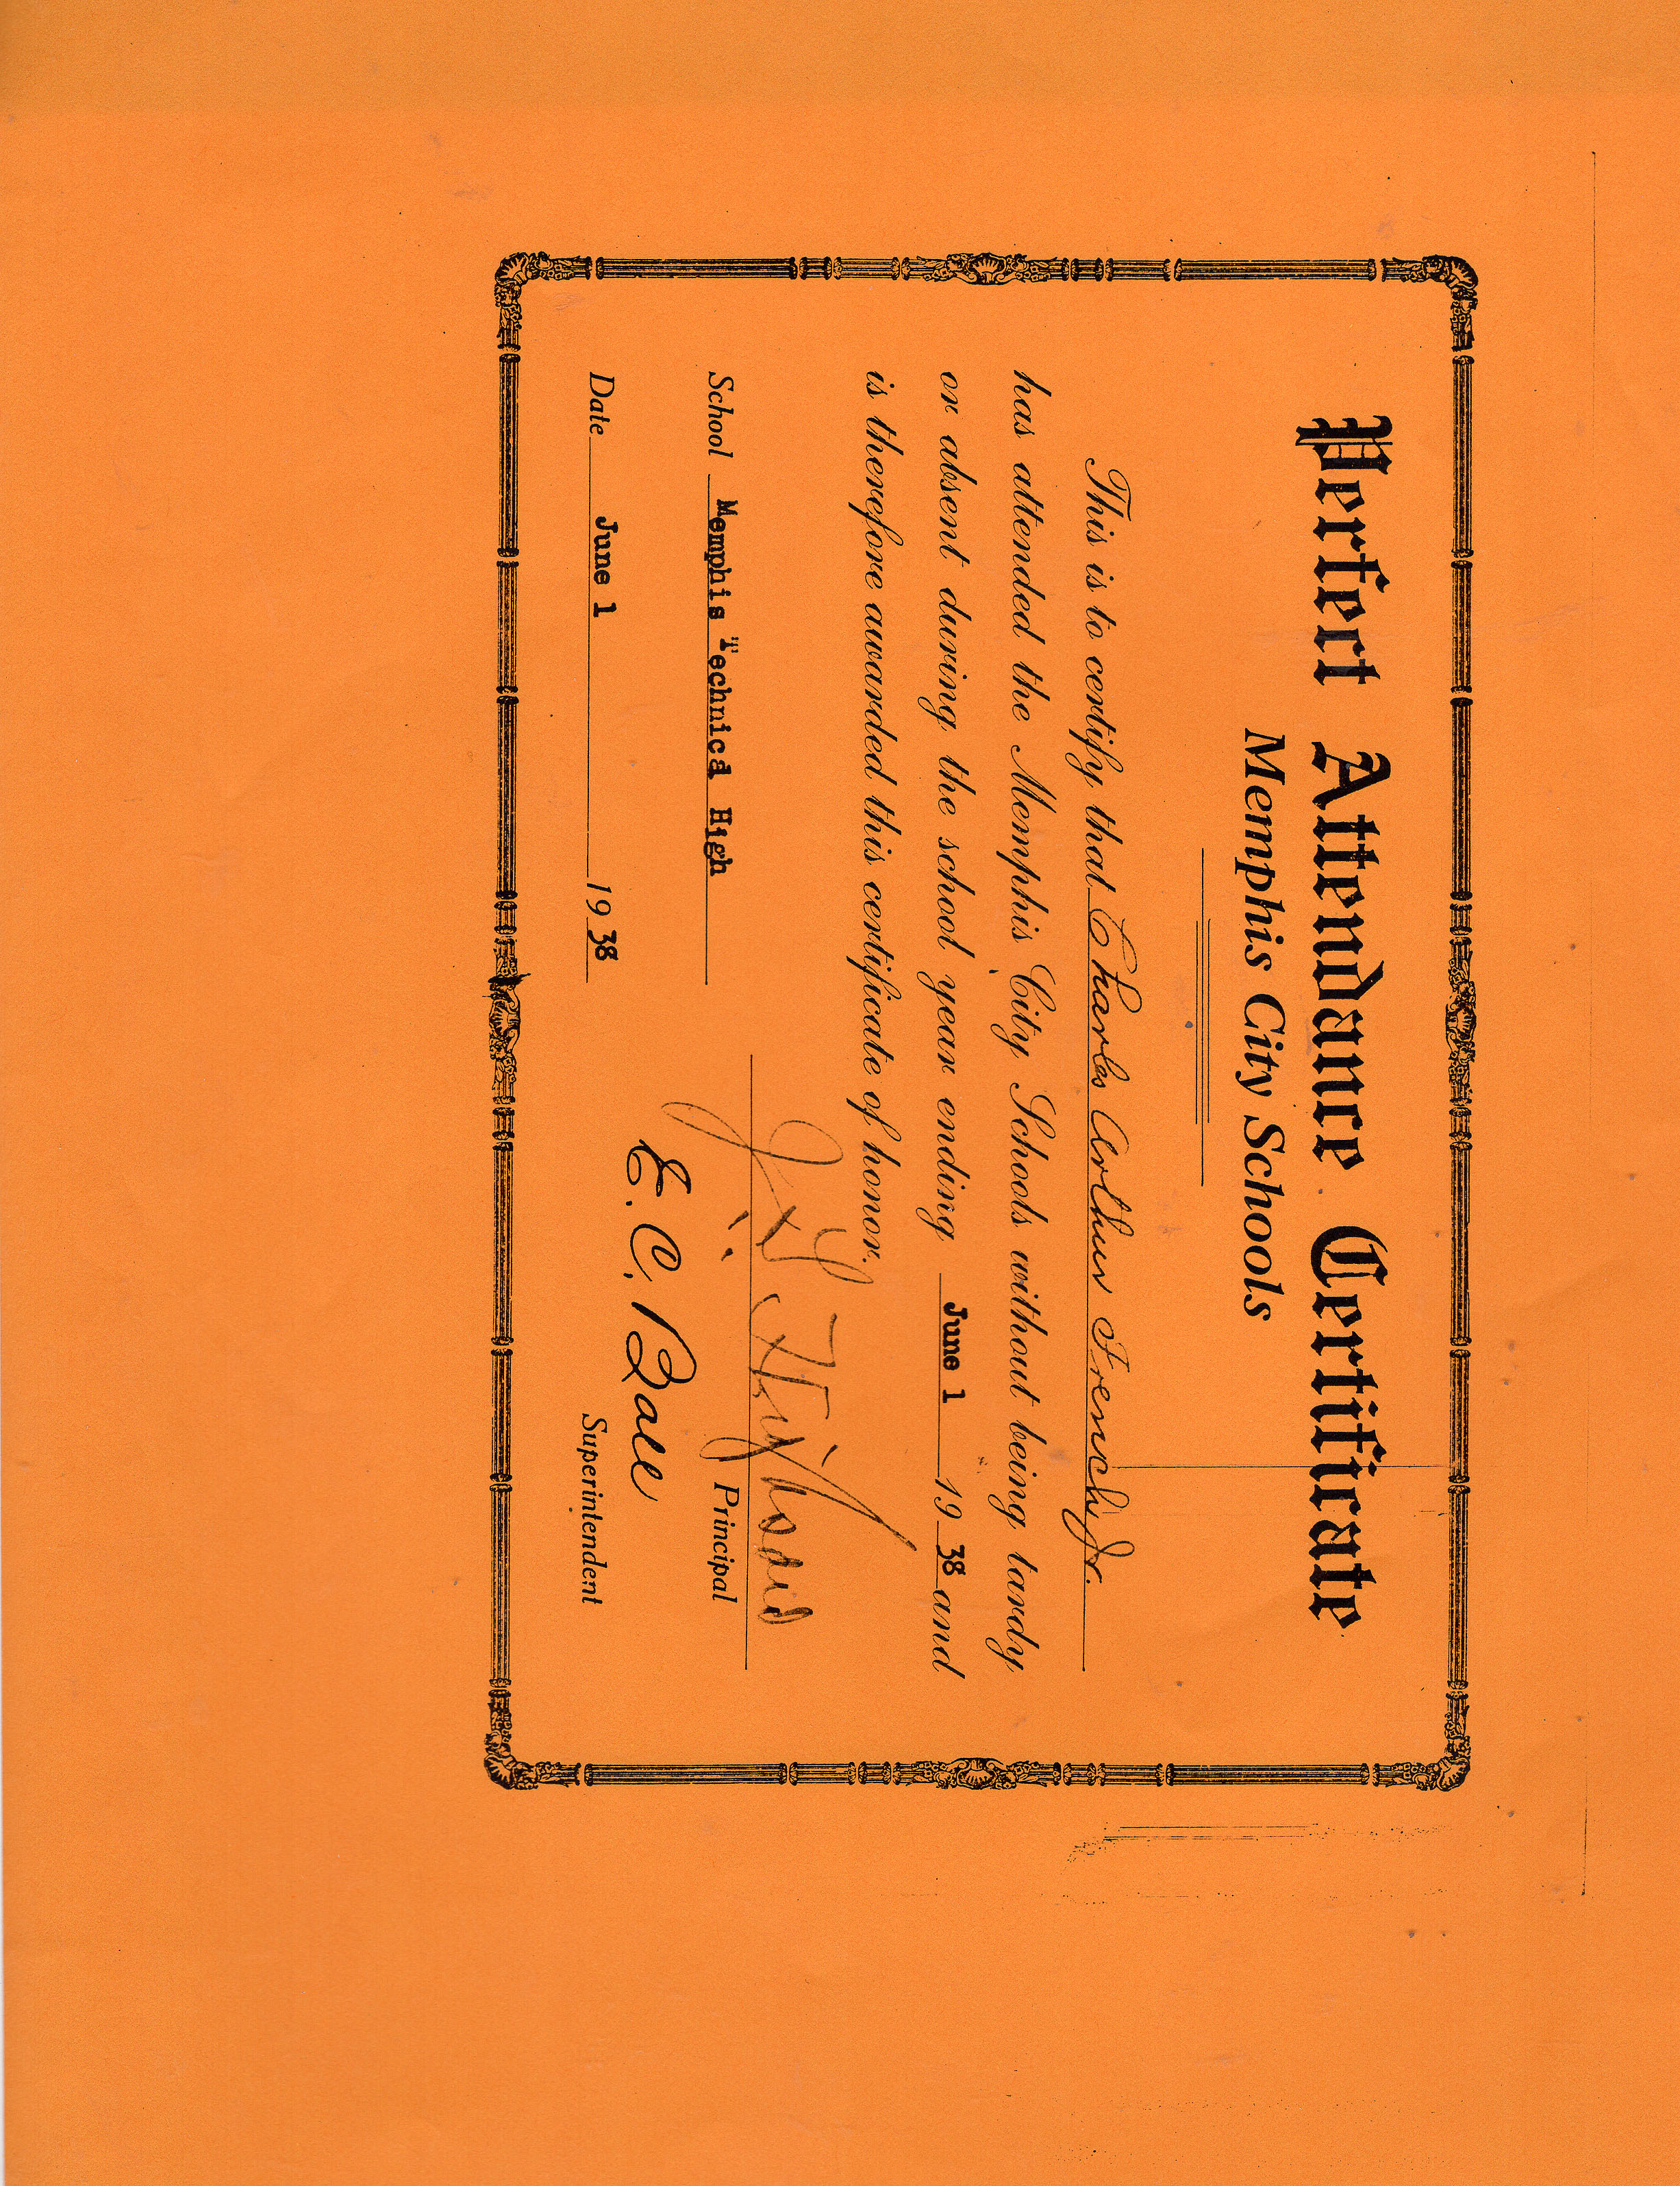 Perfect Attendance Certificate
Memphis City Schools
This is to certify that Charles Arthur French, Jr.
has attended the Memphis City Schools without being tardy
or absent during the school year ending June 1 1938 and
is therefore awarded this certificate of honor.
School Memphis Technical High
Principal
Date June 1 1938
E. C. Ball
Superintendent